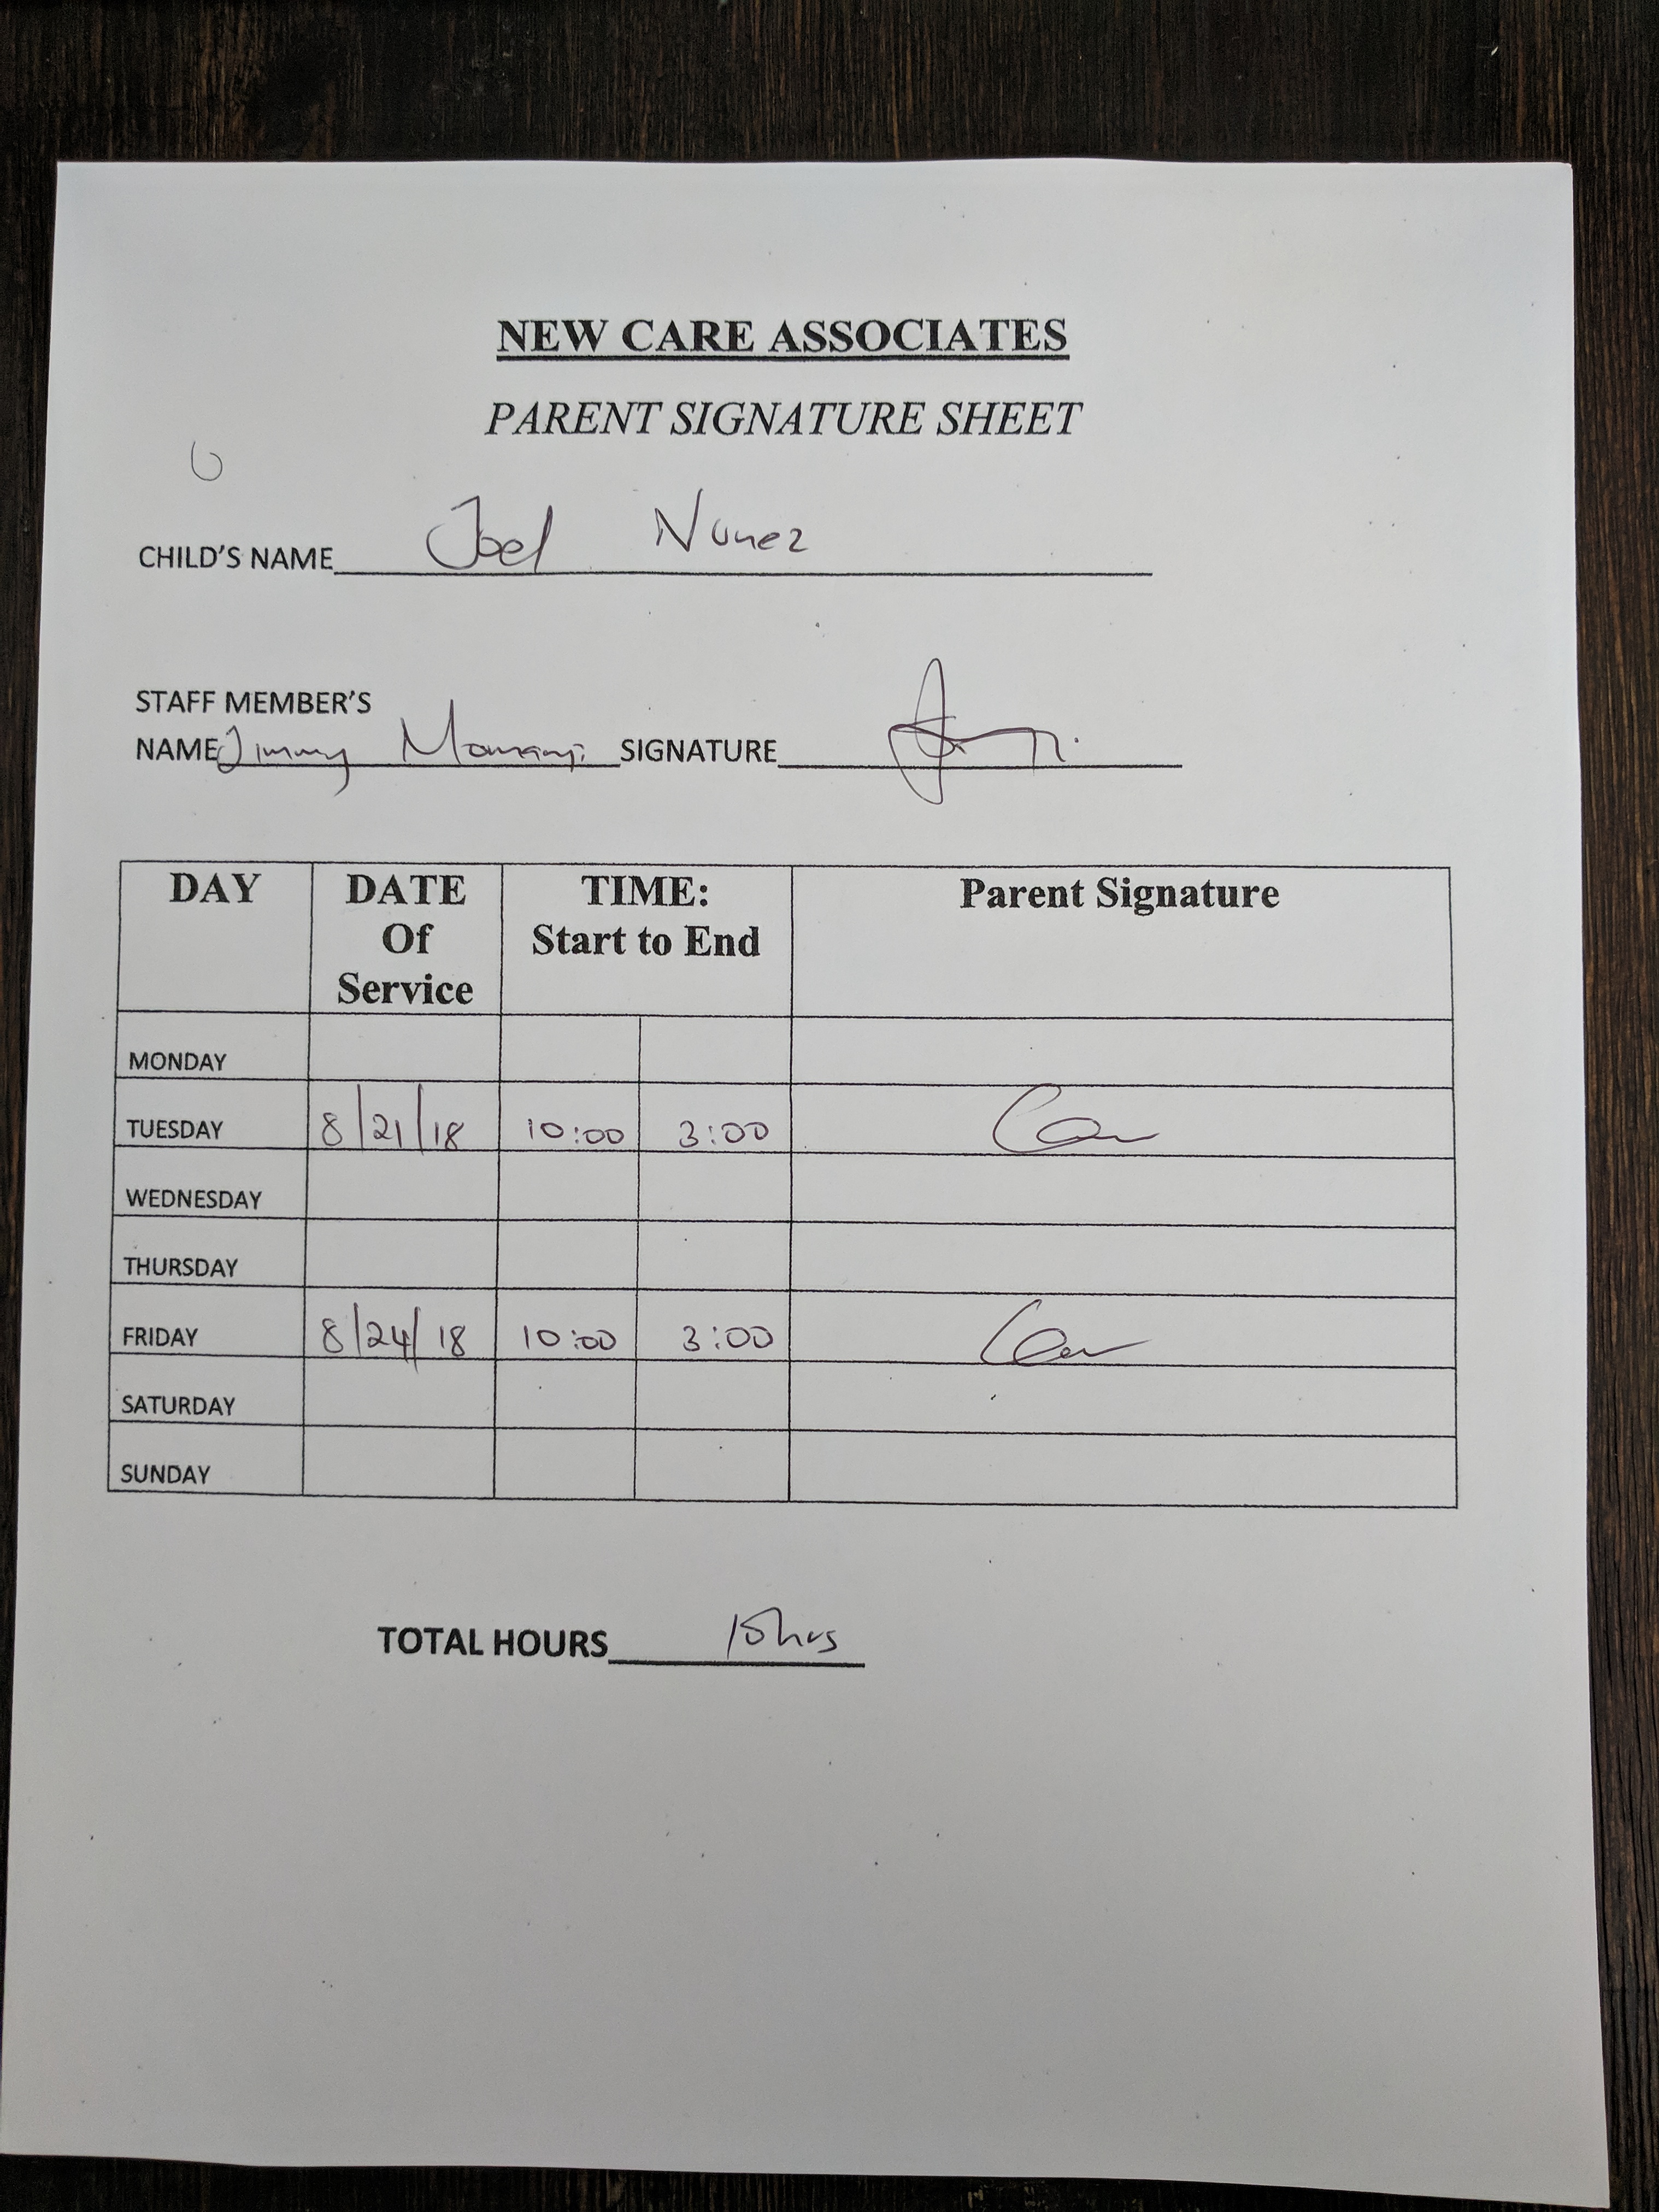 NEW CARE ASSOCIATES
PARENT SIGNATURE SHEET
CHILD'S NAME Joel Nunez
STAFF MEMBER'S
NAME Jimmy Momanyi SIGNATURE
DAY DATE Of Service TIME: Start to End Parent Signature
MONDAY
TUESDAY 8/21/18 10:00 3:00
WEDNESDAY
THURSDAY
FRIDAY 8/24/18 10:00 3:00
SATURDAY
SUNDAY
TOTAL HOURS